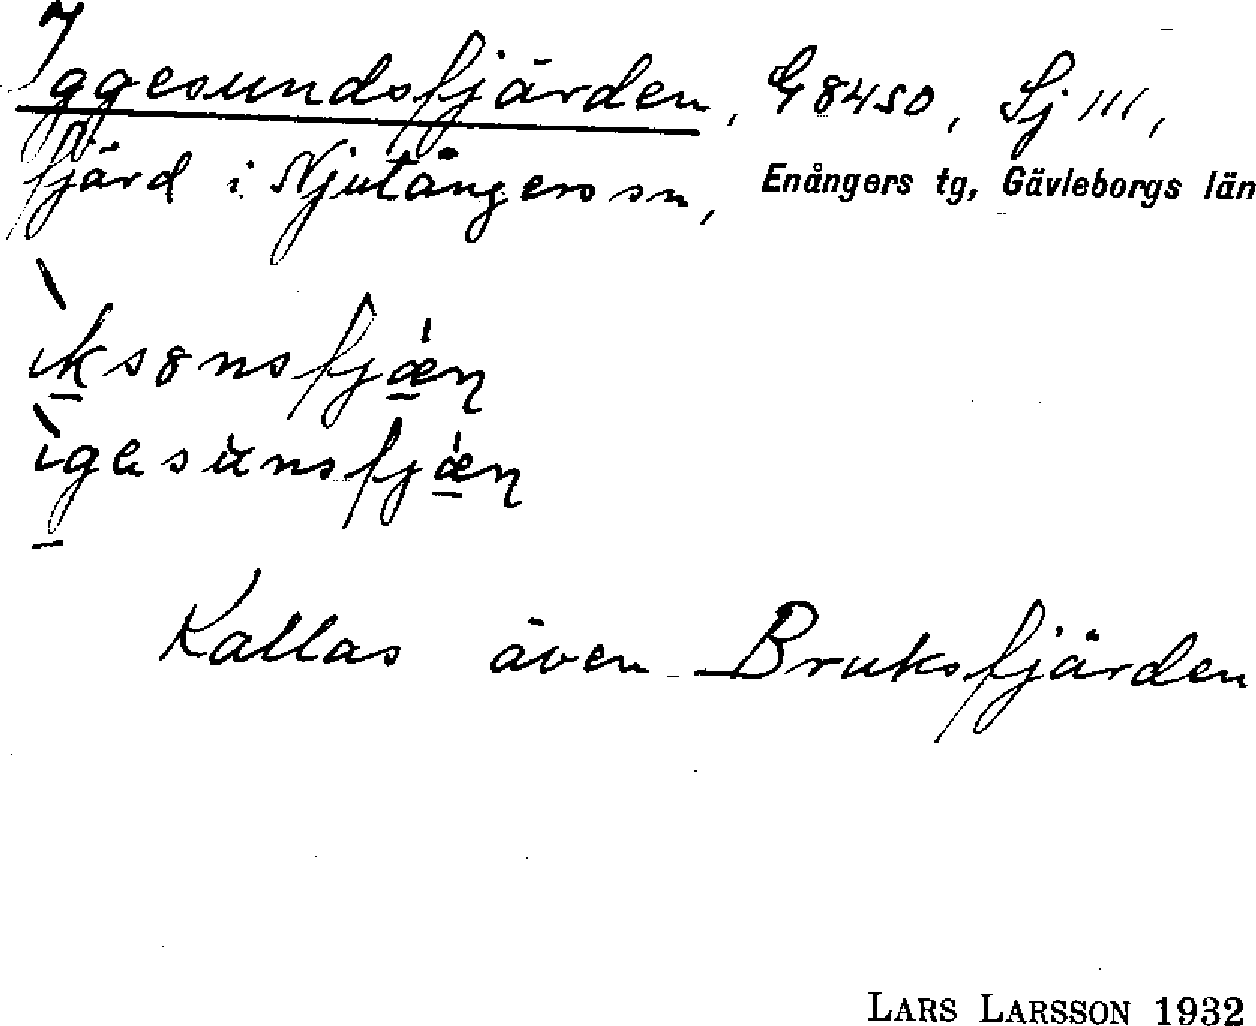 Iggesundsfjärden, G 8450, Sj III,
fjärd i Njutångers sn, Enångers tg, Gävleborgs län
Kallas även Bruksfjärden
LARS LARSSON 1932